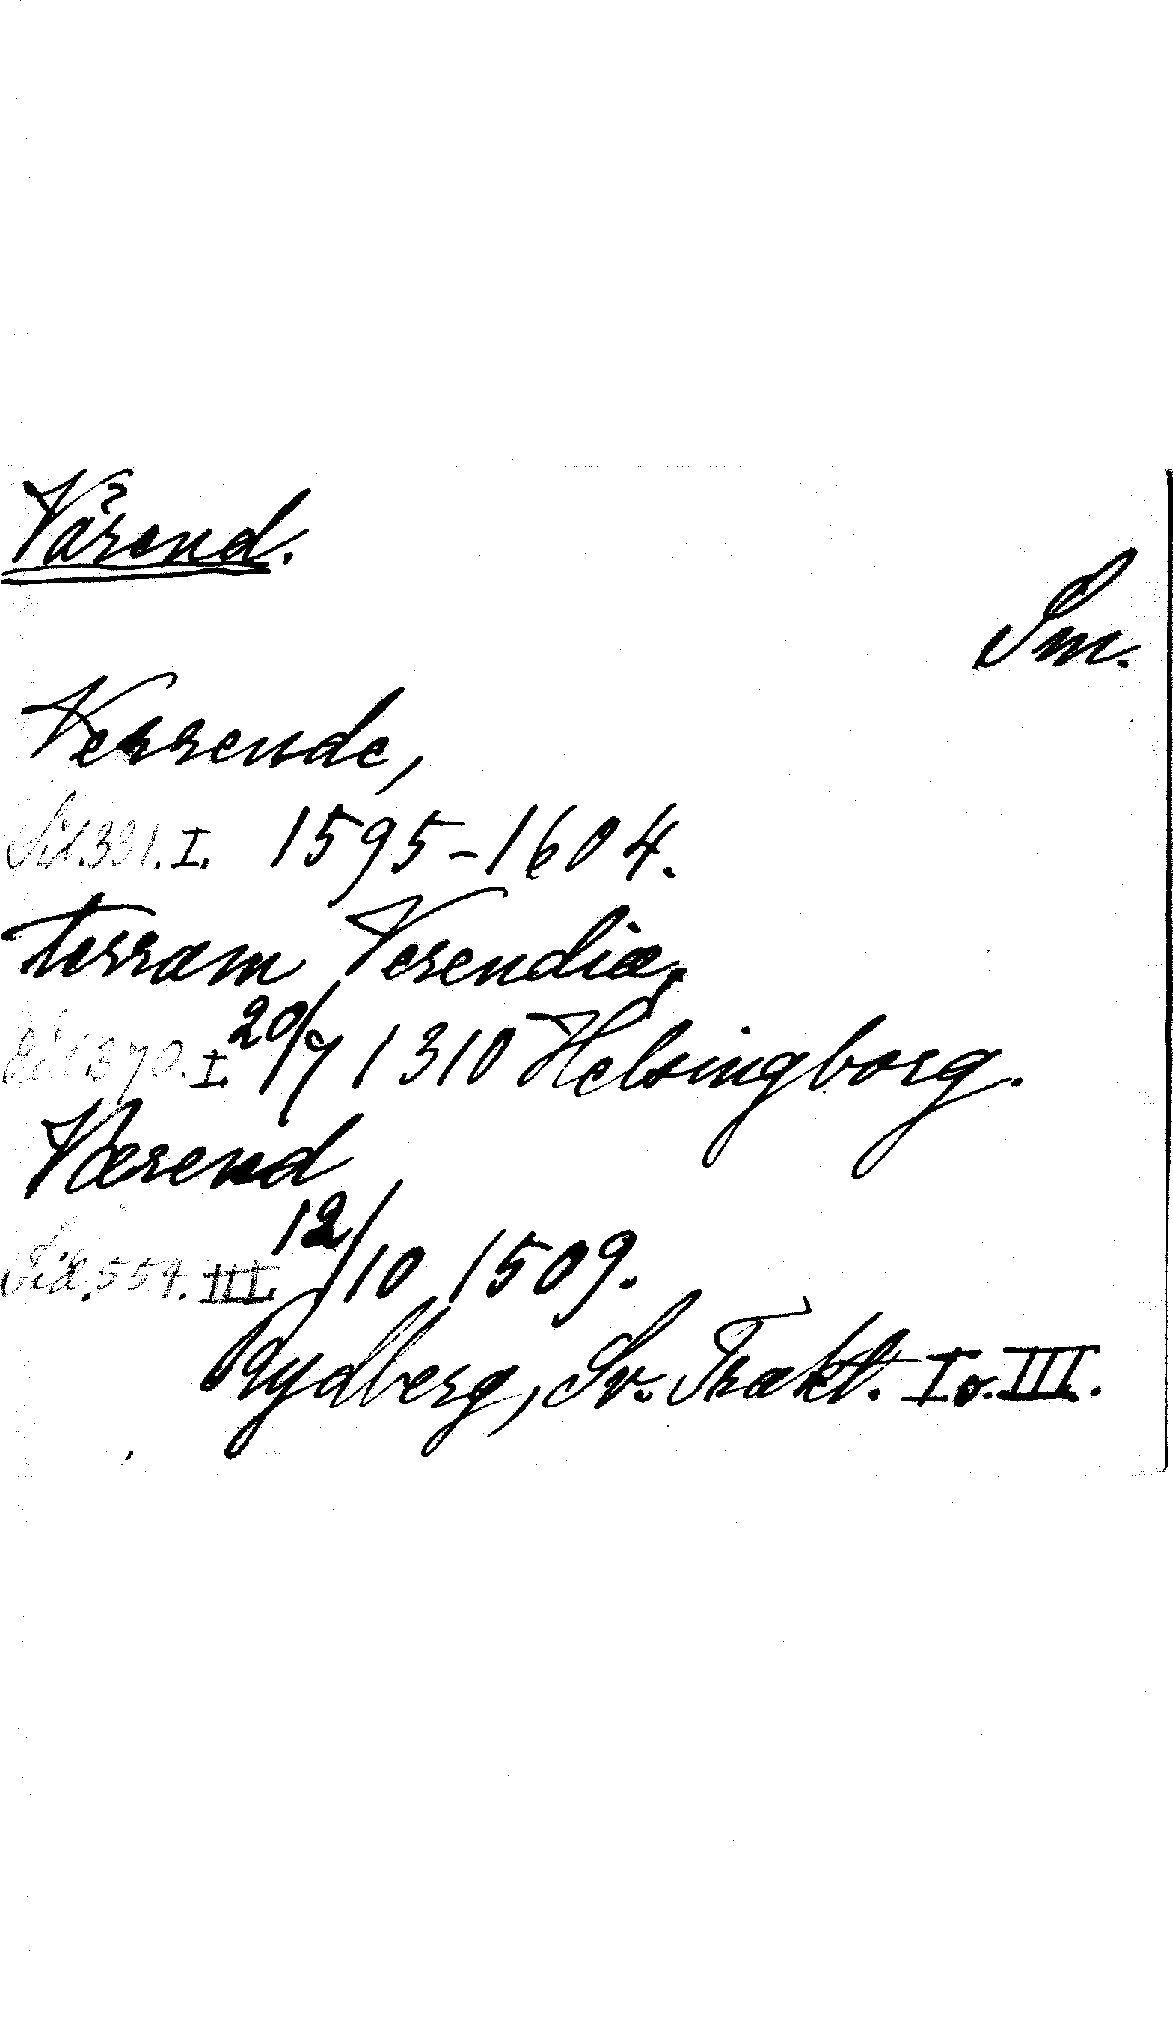 Värend.
Sm.
Verrende,
Sid. 331. I. 1595-1604.
terram Verendiæ,
Sid. 370. I. 20/7 1310 Helsingborg.
Værend
Sid. 559. III. 12/10 1509.
Rydberg, Sv. Trakt. I o. III.